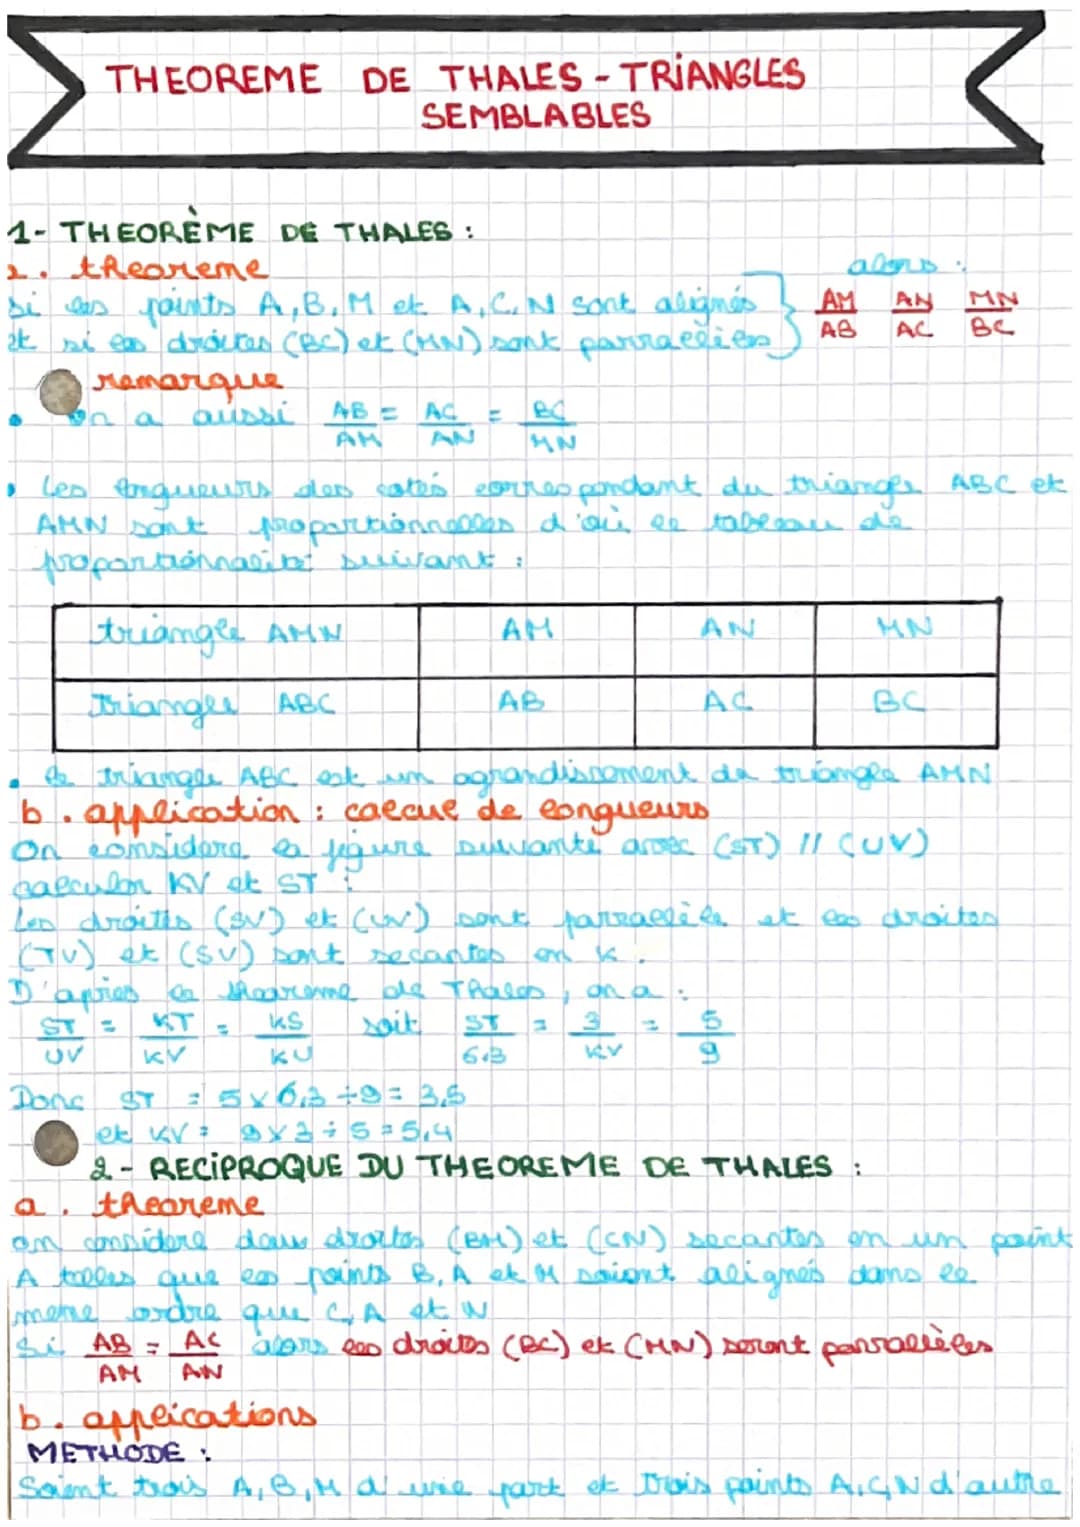 THEOREME DE THALES - TRIANGLES
SEMBLABLES
1- THEORÈME DE THALES :
2. theoreme
si les points A, B, M et A, C, N sont alignés
et si les droites (BC) et (MN) sont parraelières
alors :
AM AN MN
AB AC BC
remarque
• on a aussi AB = AC = BC
AM AN MN
• Les longueurs des cotés correspondant du triangle ABC et
AMN sont proportionnelles d'où le tableau de
proportionnalité suivant :
triangle AMN AM AN MN
Triangle ABC AB AC BC
• le triangle ABC est un agrandissement du triangle AMN
b. application : calcul de longueurs
On considere la figure suivante avec (ST) // (UV)
calculer KV et ST :
Les droites (SV) et (UV) sont parraelèle et les droites
(TV) et (SV) sont secantes en K.
D'après le theoreme de Thales, on a :
ST = KT = KS soit ST = 3 = 5
UV KV KU 6,3 KV 9
Donc ST = 5 x 6,3 ÷ 9 = 3,5
et KV = 9 x 3 ÷ 5 = 5,4
2 - RECIPROQUE DU THEOREME DE THALES :
a. theoreme
on considere deux droites (BM) et (CN) secantes en un point
A telles que les points B, A et M soient alignés dans le
meme ordre que C, A et N
Si AB = AC alors les droites (BC) et (MN) seront parraelèles
AM AN
b. applications
METHODE :
Soient trois A, B, M d'une part et trois points A, C, N d'autre